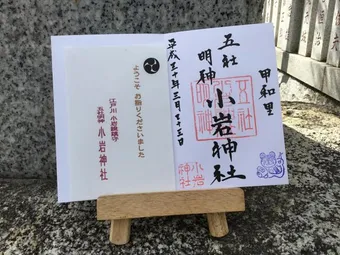 甲和里
五社
明神
小岩神社
平成三十年三月二十三日
五社
明神
小岩
神社
ようこそ お詣りくださいました
江戸川 小岩鎮護
小岩神社